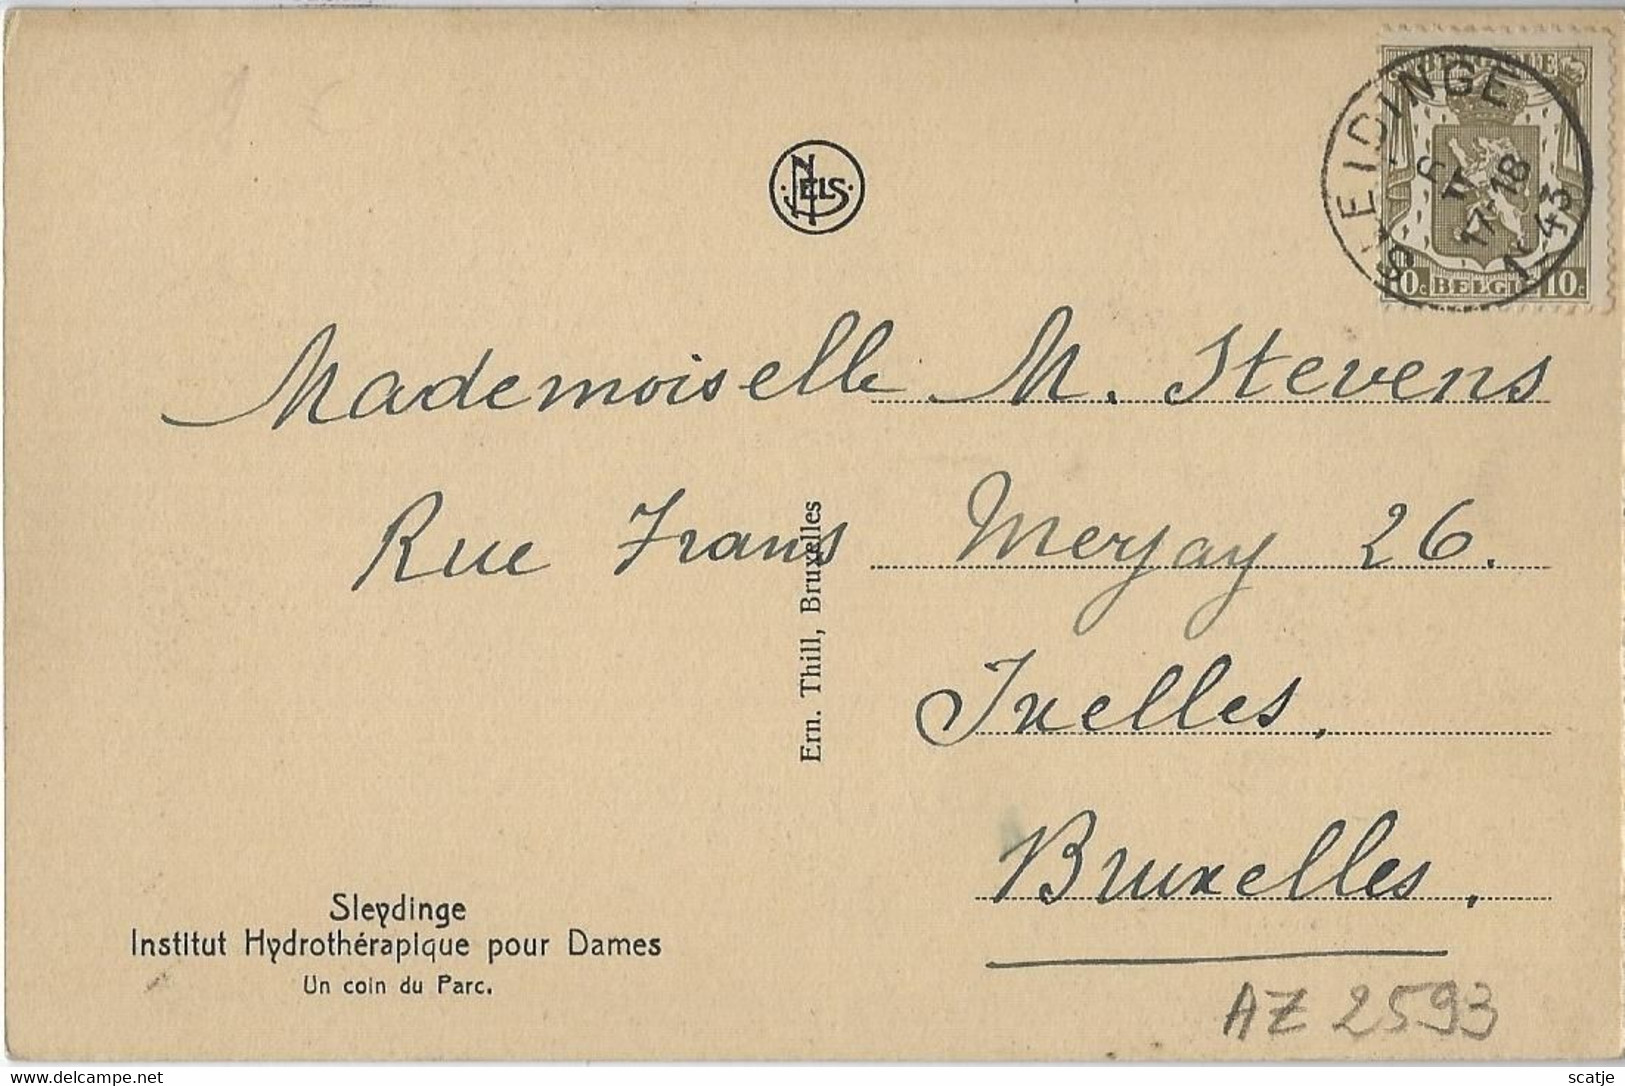 BELGIQUE
SLEIDINGE
17-18
43
10c BELGIE 10c
NELS
Mademoiselle M. Stevens
Rue Frans Merjay 26.
Ixelles,
Bruxelles,
Ern. Thill, Bruxelles
Sleydinge
Institut Hydrothérapique pour Dames
Un coin du Parc.
AZ 2593
www.delcampe.net
scatje